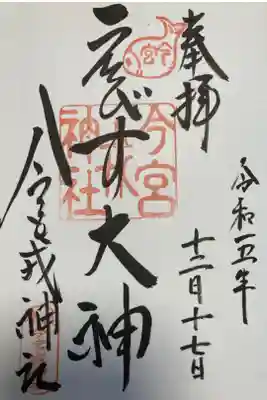 奉拝
令和五年
十二月十七日
ゑびす大神
今宮戎神社
今宮
戎
神社